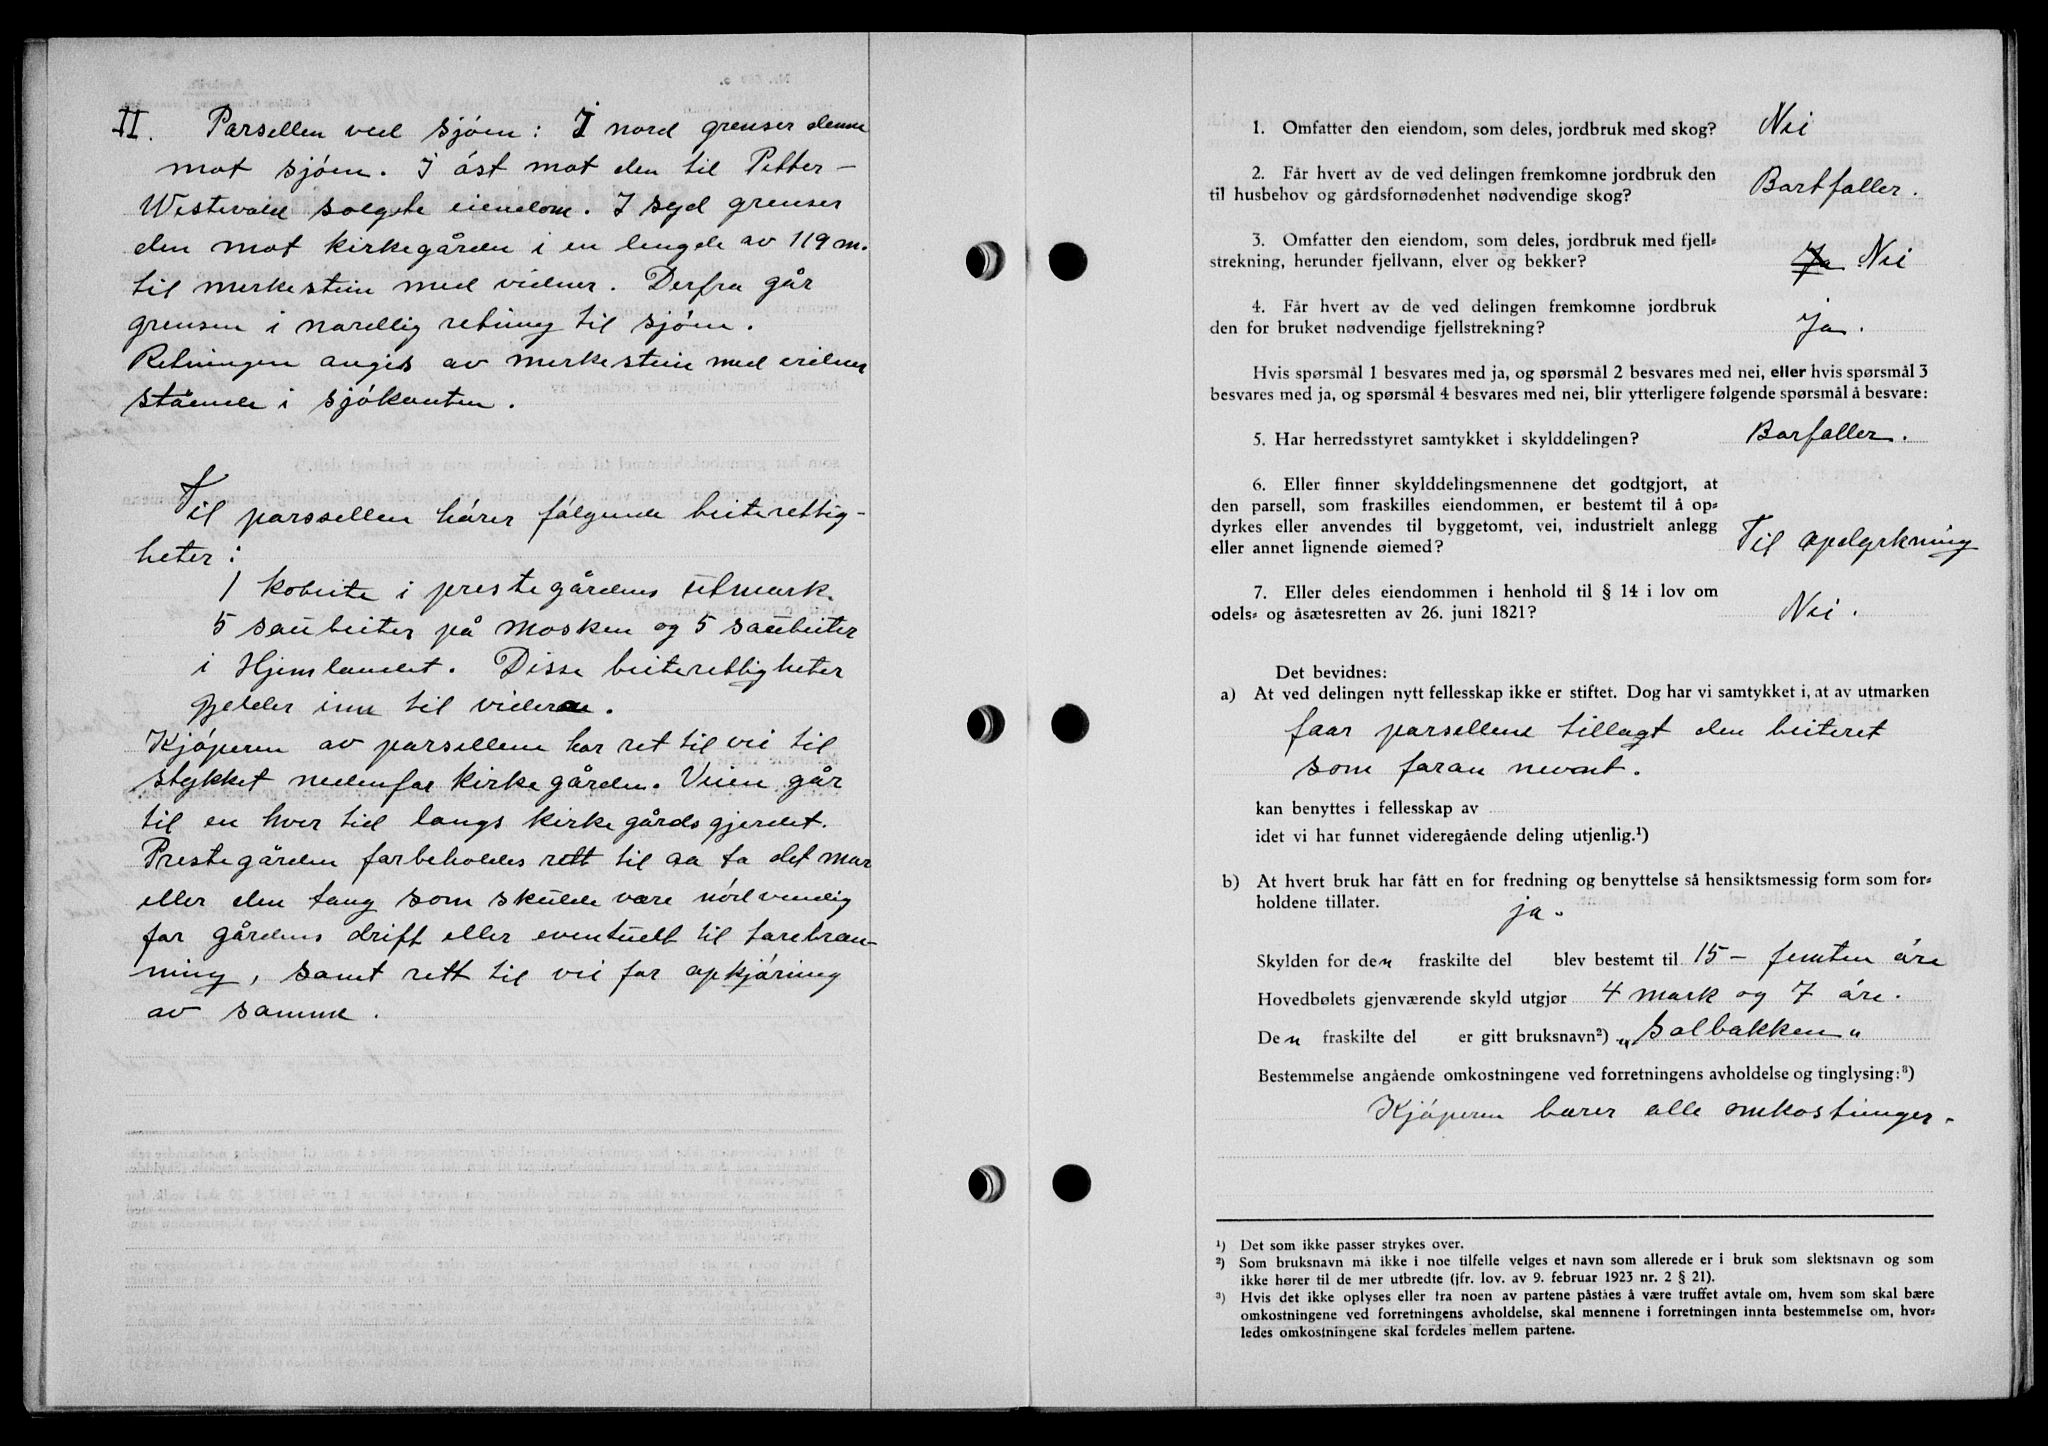 II. Parsellen ved sjøen: I nord grenser denne
mot sjøen. I øst mot den til Petter
Westvold solgte eiendom. I syd grenser
den mot kirkegården i en lengde av 119 m.
til merkestein med vidner. Derfra går
grensen i nordlig retning til sjøen.
Retningen angis av merkestein med vidner
stående i sjøkanten.
Til parsellen hører følgende beiterettig-
heter:
1 kobeite i prestegårdens utmark.
5 saubeiter på Mosken og 5 saubeiter
i Hjemlandet. Disse beiterettigheter
gjelder inn til videre.
Kjøperen av parsellene har ret til vei til
stykket nedenfor kirkegården. Veien går
til en hver tid langs kirkegårdsgjerdet.
Prestegården forbeholdes rett til aa ta det mor
eller den tang som skulde være nødvendig
for gårdens drift eller eventuelt til tarebræn-
ning, samt rett til vei for opkjøring
av samme.
1. Omfatter den eiendom, som deles, jordbruk med skog? Nei
2. Får hvert av de ved delingen fremkomne jordbruk den
til husbehov og gårdsfornødenhet nødvendige skog? Bortfaller.
3. Omfatter den eiendom, som deles, jordbruk med fjell-
strekning, herunder fjellvann, elver og bekker? Ja Nei
4. Får hvert av de ved delingen fremkomne jordbruk
den for bruket nødvendige fjellstrekning? Ja.
Hvis spørsmål 1 besvares med ja, og spørsmål 2 besvares med nei, eller hvis spørsmål 3
besvares med ja, og spørsmål 4 besvares med nei, blir ytterligere følgende spørsmål å besvare:
5. Har herredsstyret samtykket i skylddelingen? Borfaller.
6. Eller finner skylddelingsmennene det godtgjort, at
den parsell, som fraskilles eiendommen, er bestemt til å op-
dyrkes eller anvendes til byggetomt, vei, industrielt anlegg
eller annet lignende øiemed? Til opdyrkning
7. Eller deles eiendommen i henhold til § 14 i lov om
odels- og åsætesretten av 26. juni 1821? Nei.
Det bevidnes:
a) At ved delingen nytt fellesskap ikke er stiftet. Dog har vi samtykket i, at av utmarken
faar parsellene tillagt den beiteret
som foran nevnt.
kan benyttes i fellesskap av
idet vi har funnet videregående deling utjenlig.¹)
b) At hvert bruk har fått en for fredning og benyttelse så hensiktsmessig form som for-
holdene tillater. ja.
Skylden for den fraskilte del blev bestemt til 15 - femten øre
Hovedbølets gjenværende skyld utgjør 4 mark og 7 øre.
Den fraskilte del er gitt bruksnavn²) „Solbakken"
Bestemmelse angående omkostningene ved forretningens avholdelse og tinglysing:³)
Kjøperen bærer alle omkostninger.
¹) Det som ikke passer strykes over.
²) Som bruksnavn må ikke i noe tilfelle velges et navn som allerede er i bruk som slektsnavn og som
ikke hører til de mer utbredte (jfr. lov. av 9. februar 1923 nr. 2 § 21).
³) Hvis det ikke oplyses eller fra noen av partene påståes å være truffet avtale om, hvem som skal bære
omkostningene ved forretningens avholdelse, skal mennene i forretningen innta bestemmelse om, hvor-
ledes omkostningene skal fordeles mellem partene.